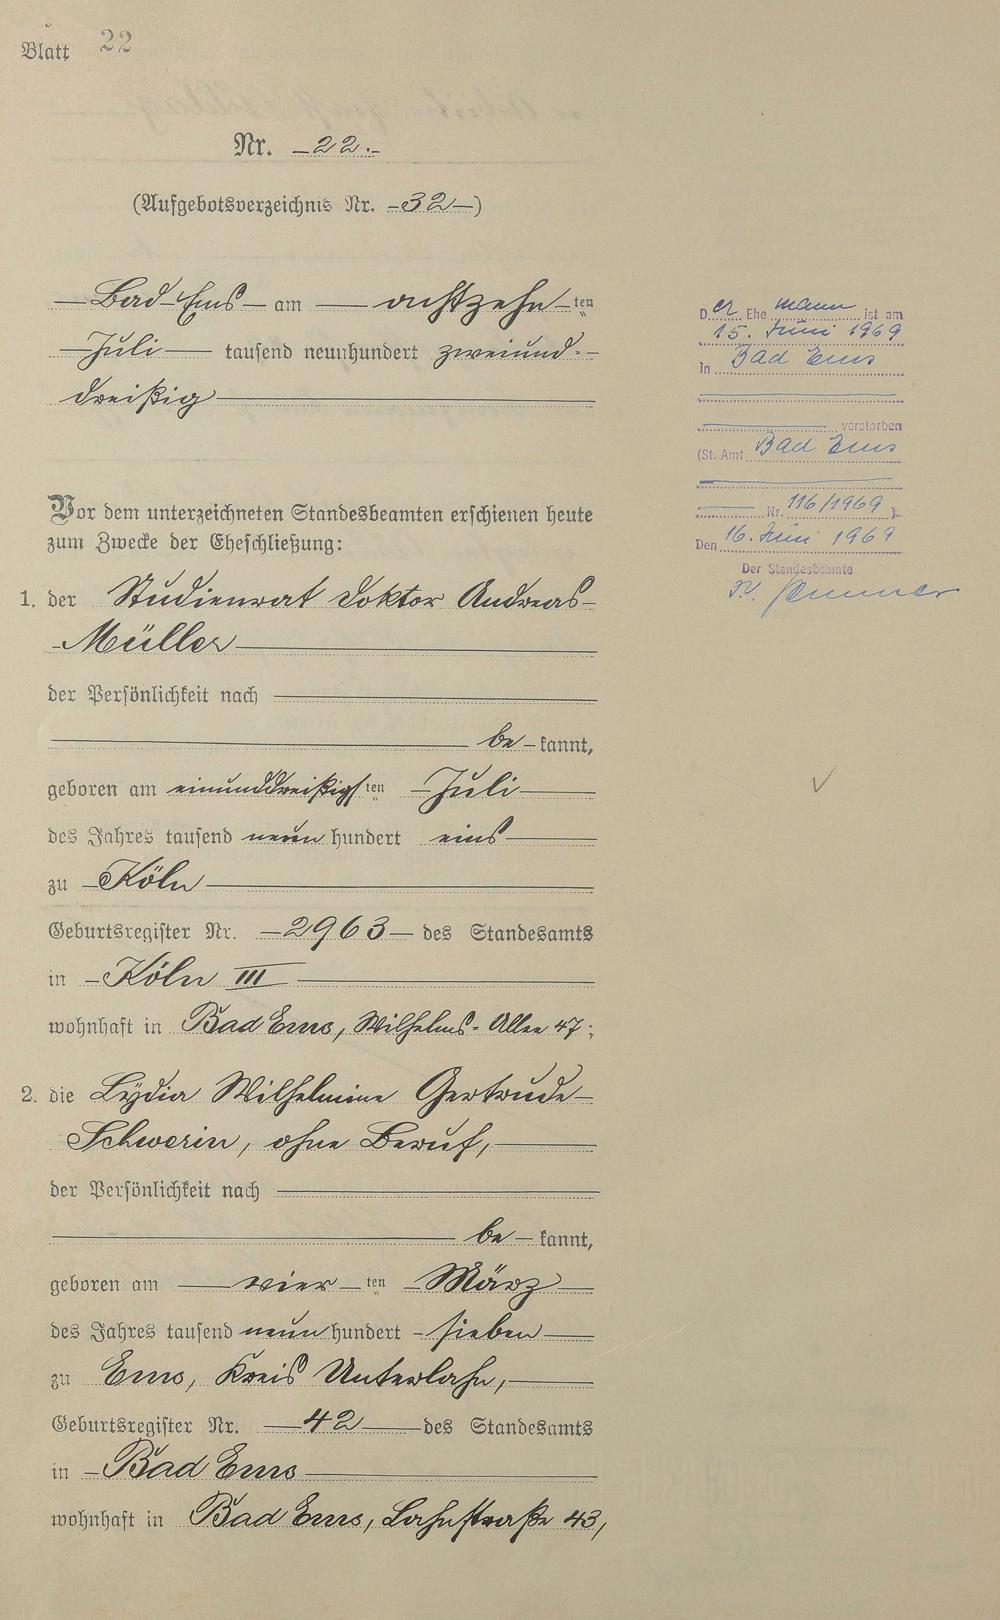 Blatt 22
Nr. 22.
(Aufgebotsverzeichnis Nr. 32)
Bad Ems am achtzehnten
Juli tausend neunhundert zweiund-
dreißig
Vor dem unterzeichneten Standesbeamten erschienen heute
zum Zwecke der Eheschließung:
1. der Studienrat Doktor Andreas
Müller
der Persönlichkeit nach
be kannt,
geboren am einunddreißigsten Juli
des Jahres tausend neun hundert eins
zu Köln
Geburtsregister Nr. 2963 des Standesamts
in Köln III
wohnhaft in Bad Ems, Wilhelms-Allee 47;
2. die Lydia Wilhelmine Gertrude
Schwerin, ohne Beruf,
der Persönlichkeit nach
be kannt,
geboren am vierten März
des Jahres tausend neun hundert sieben
zu Ems, Kreis Unterlahn,
Geburtsregister Nr. 42 des Standesamts
in Bad Ems
wohnhaft in Bad Ems, Lahnstraße 43,
Der Ehemann ist am
15. Juni 1969
in Bad Ems
verstorben
(St. Amt Bad Ems
Nr. 116/1969)
Den 16. Juni 1969
Der Standesbeamte